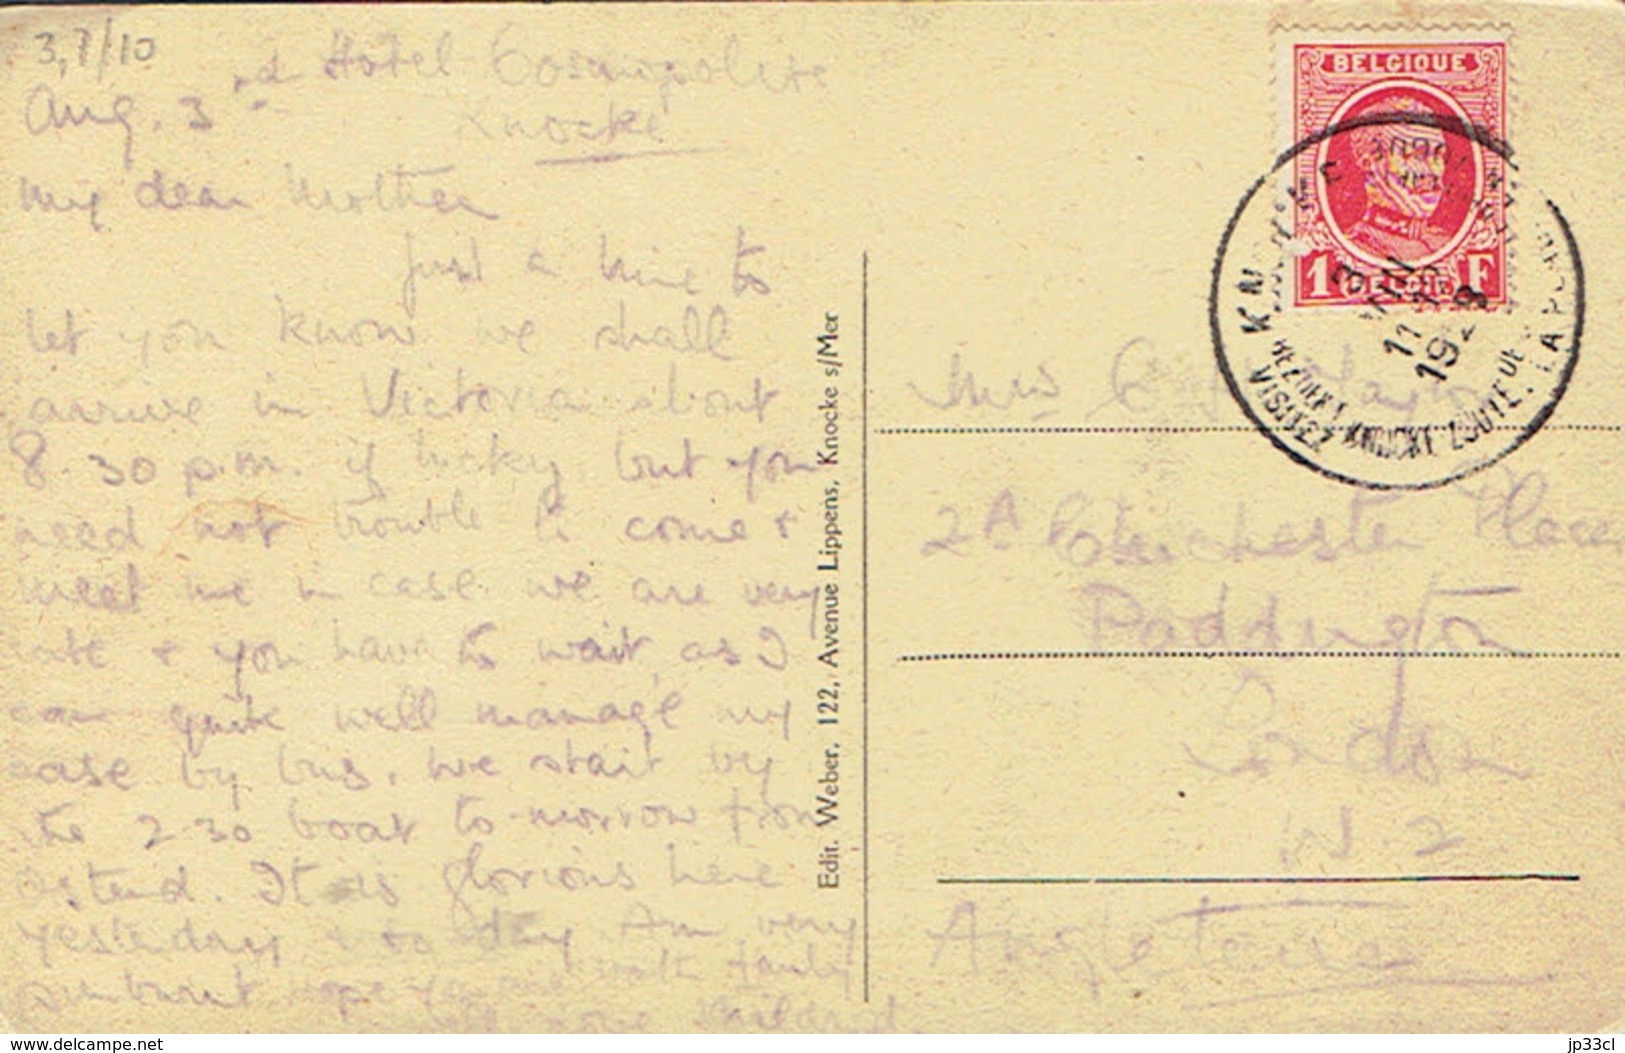 3,7/10
Aug. 3rd Hotel Cosmopolite
Knocke
My dear Mother
Just a line to
let you know we shall
arrive in Victoria about
8.30 p.m. if lucky but you
need not trouble to come &
meet me in case we are very
late & you have to wait, as I
can quite well manage my
case by bus. We start by
the 2.30 boat to-morrow from
Ostend. It is glorious here
yesterday & to-day Am very
sunburnt Hope you are
well love Mildred.
Edit. Weber, 122, Avenue Lippens, Knocke s/Mer
BELGIQUE
1 F
BELGIË
3
VIII
1928
BEZOEKT KNOCKE ZOUTE
VISITEZ
Mrs
2A Porchester Place
Paddington
London
W.2.
Angleterre
www.delcampe.net
jp33cl